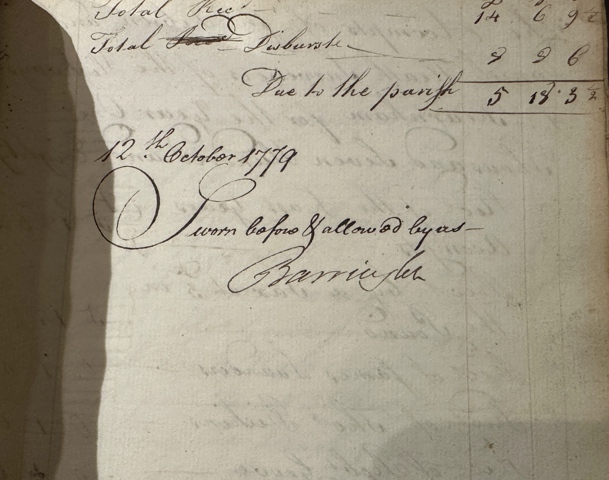 Total Recd 14 6 9½
Total Disburst 8 8 6
Due to the parish 5 18 3½
12th October 1779
Sworn before & allowed by us
Barrington